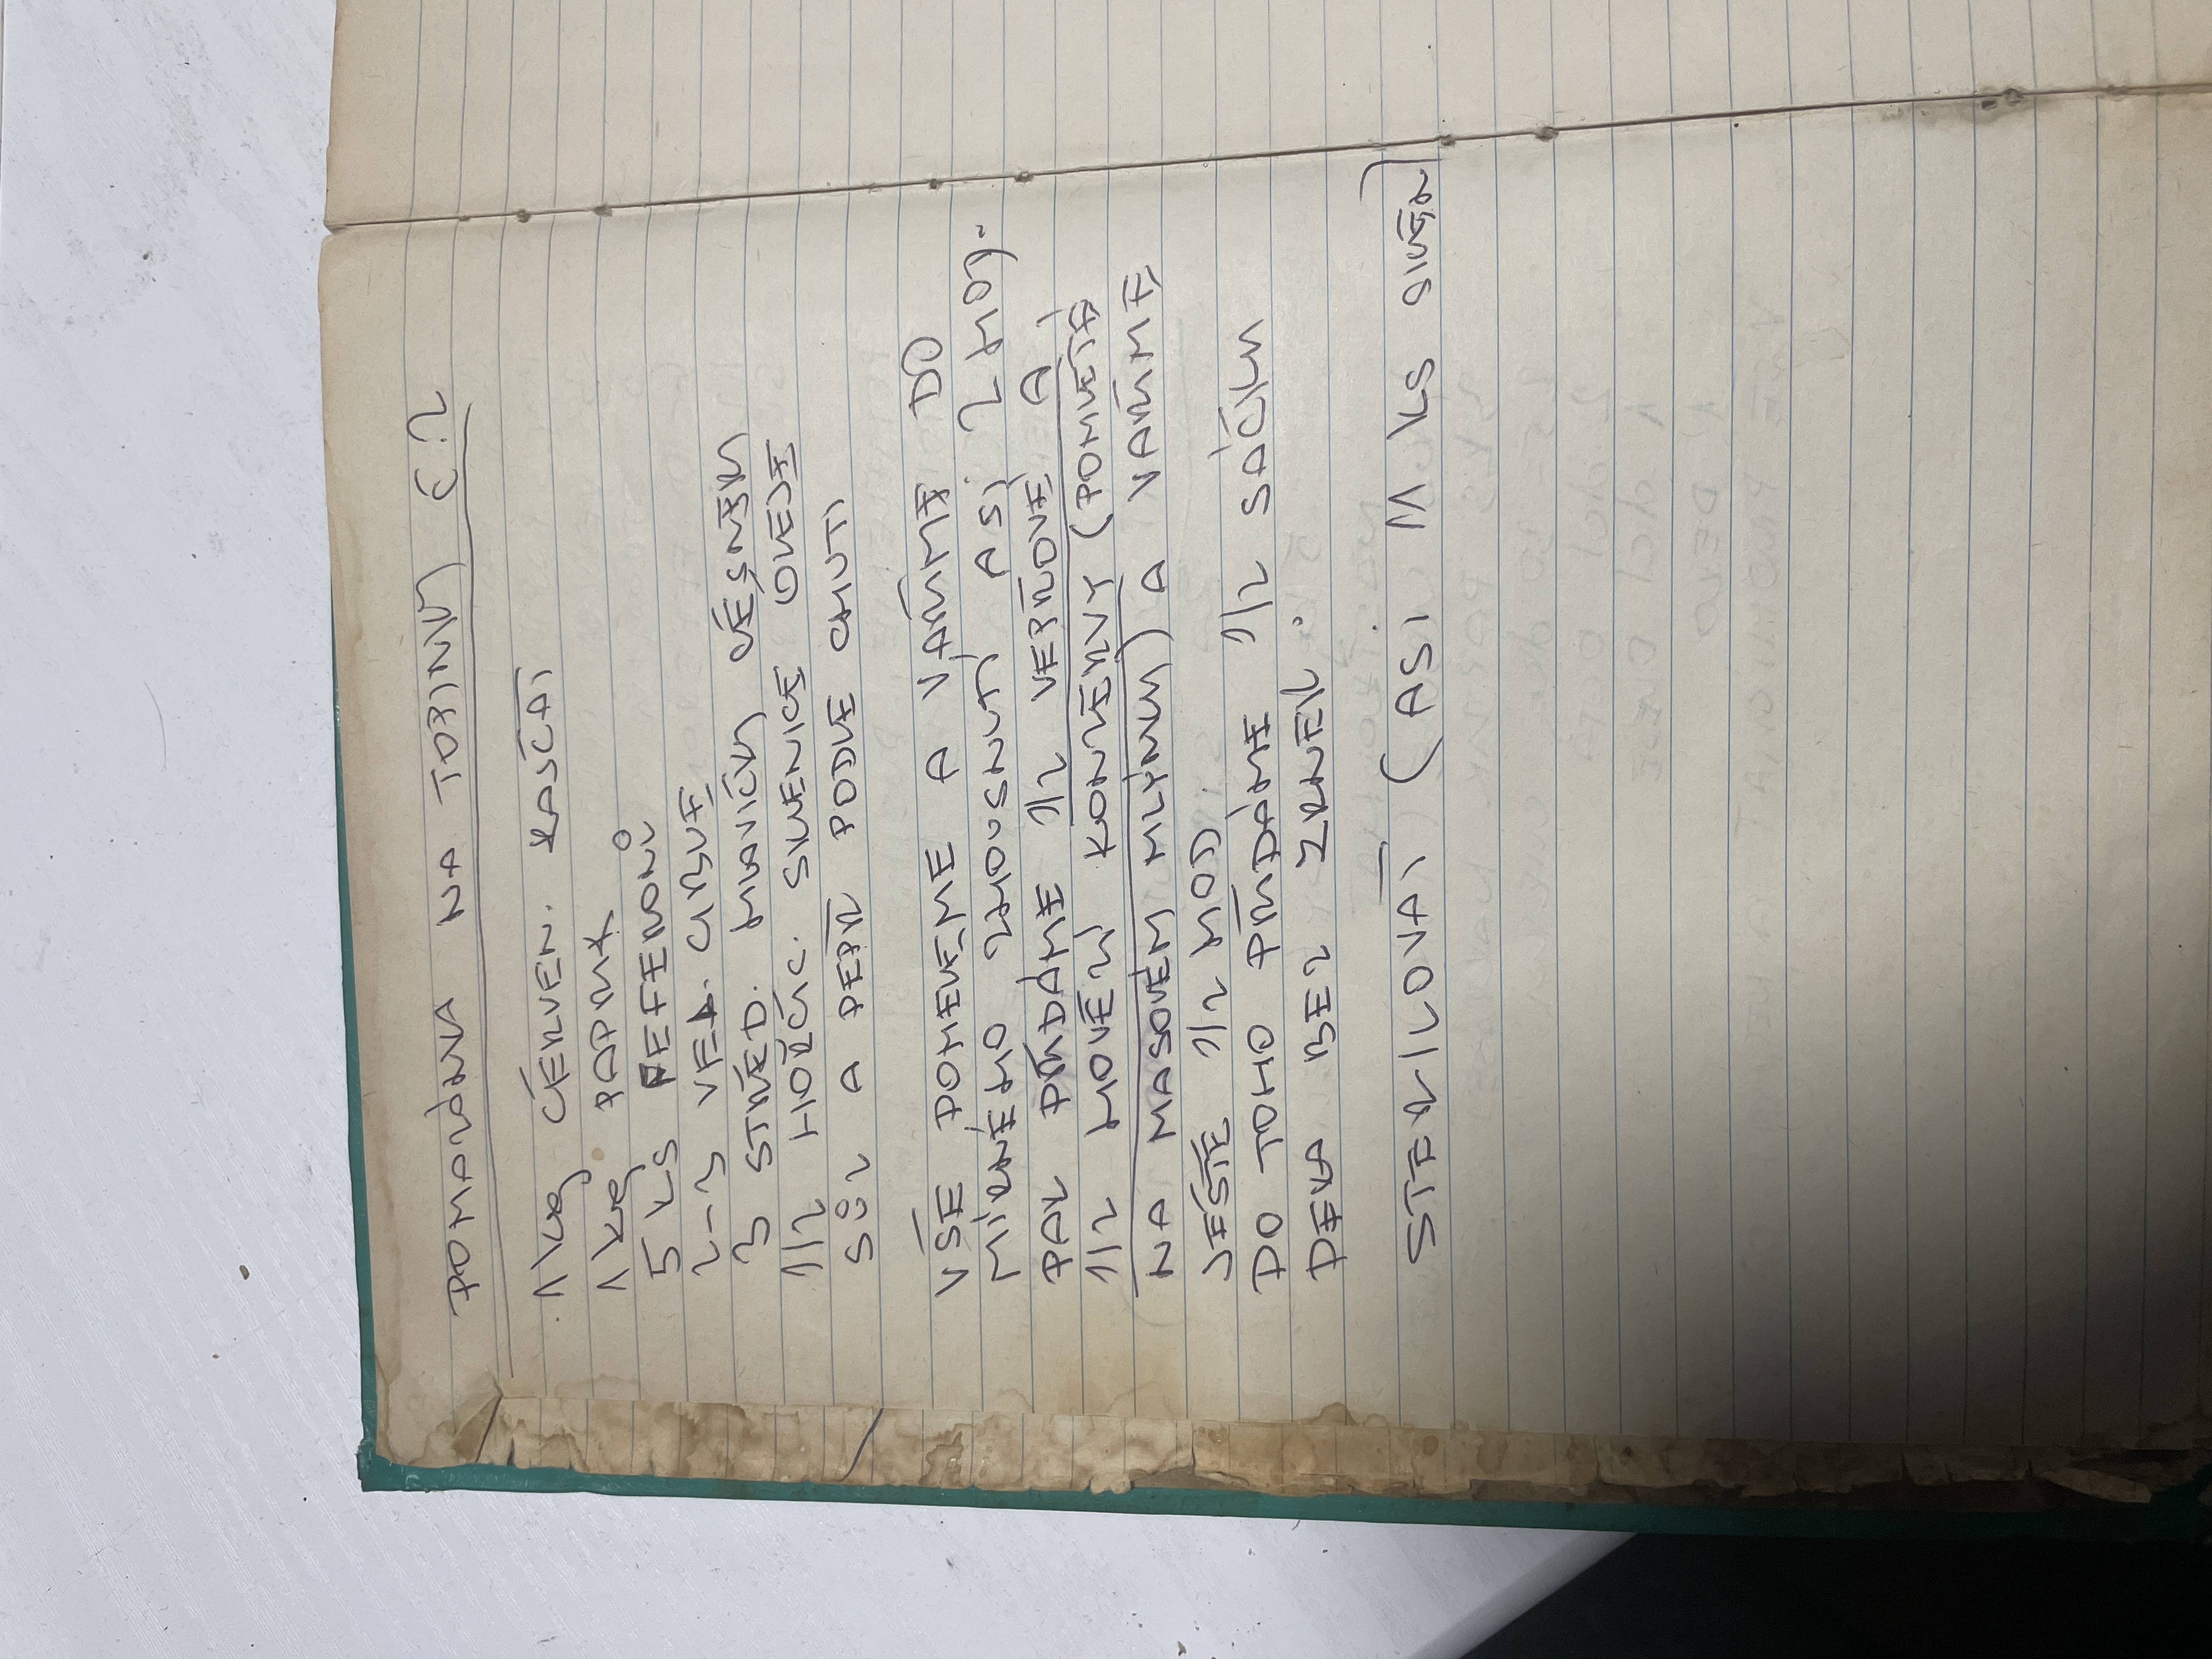 POMAZÁNKA NA TOPINKY Č.2
1kg ČERVEN. RAJČAT
1kg PAPRIK
5 KS FEFERONŮ
2-3 VEL. CIBULE
3 STŘED. HLAVIČKY ČESNEKU
1/2 HOŘČIC. SKLENICE OLEJE
SŮL A PEPŘ PODLE CHUTI
VŠE POMELEME A VAŘÍME DO
MÍRNÉHO ZHOUSNUTÍ ASI 2 HOD.
PAK PŘIDÁME 1/2 VEPŘOVÉ A
1/2 HOVĚZÍ KONZERVY (POMLETÉ
NA MASOVÉM MLÝNKU) A VAŘÍME
JEŠTĚ 1/2 HOD.
DO TOHO PŘIDÁME 1/2 SÁČKU
DEKA BEZ ZRNEK.
STERILOVAT (ASI 11 KS SKLEN)